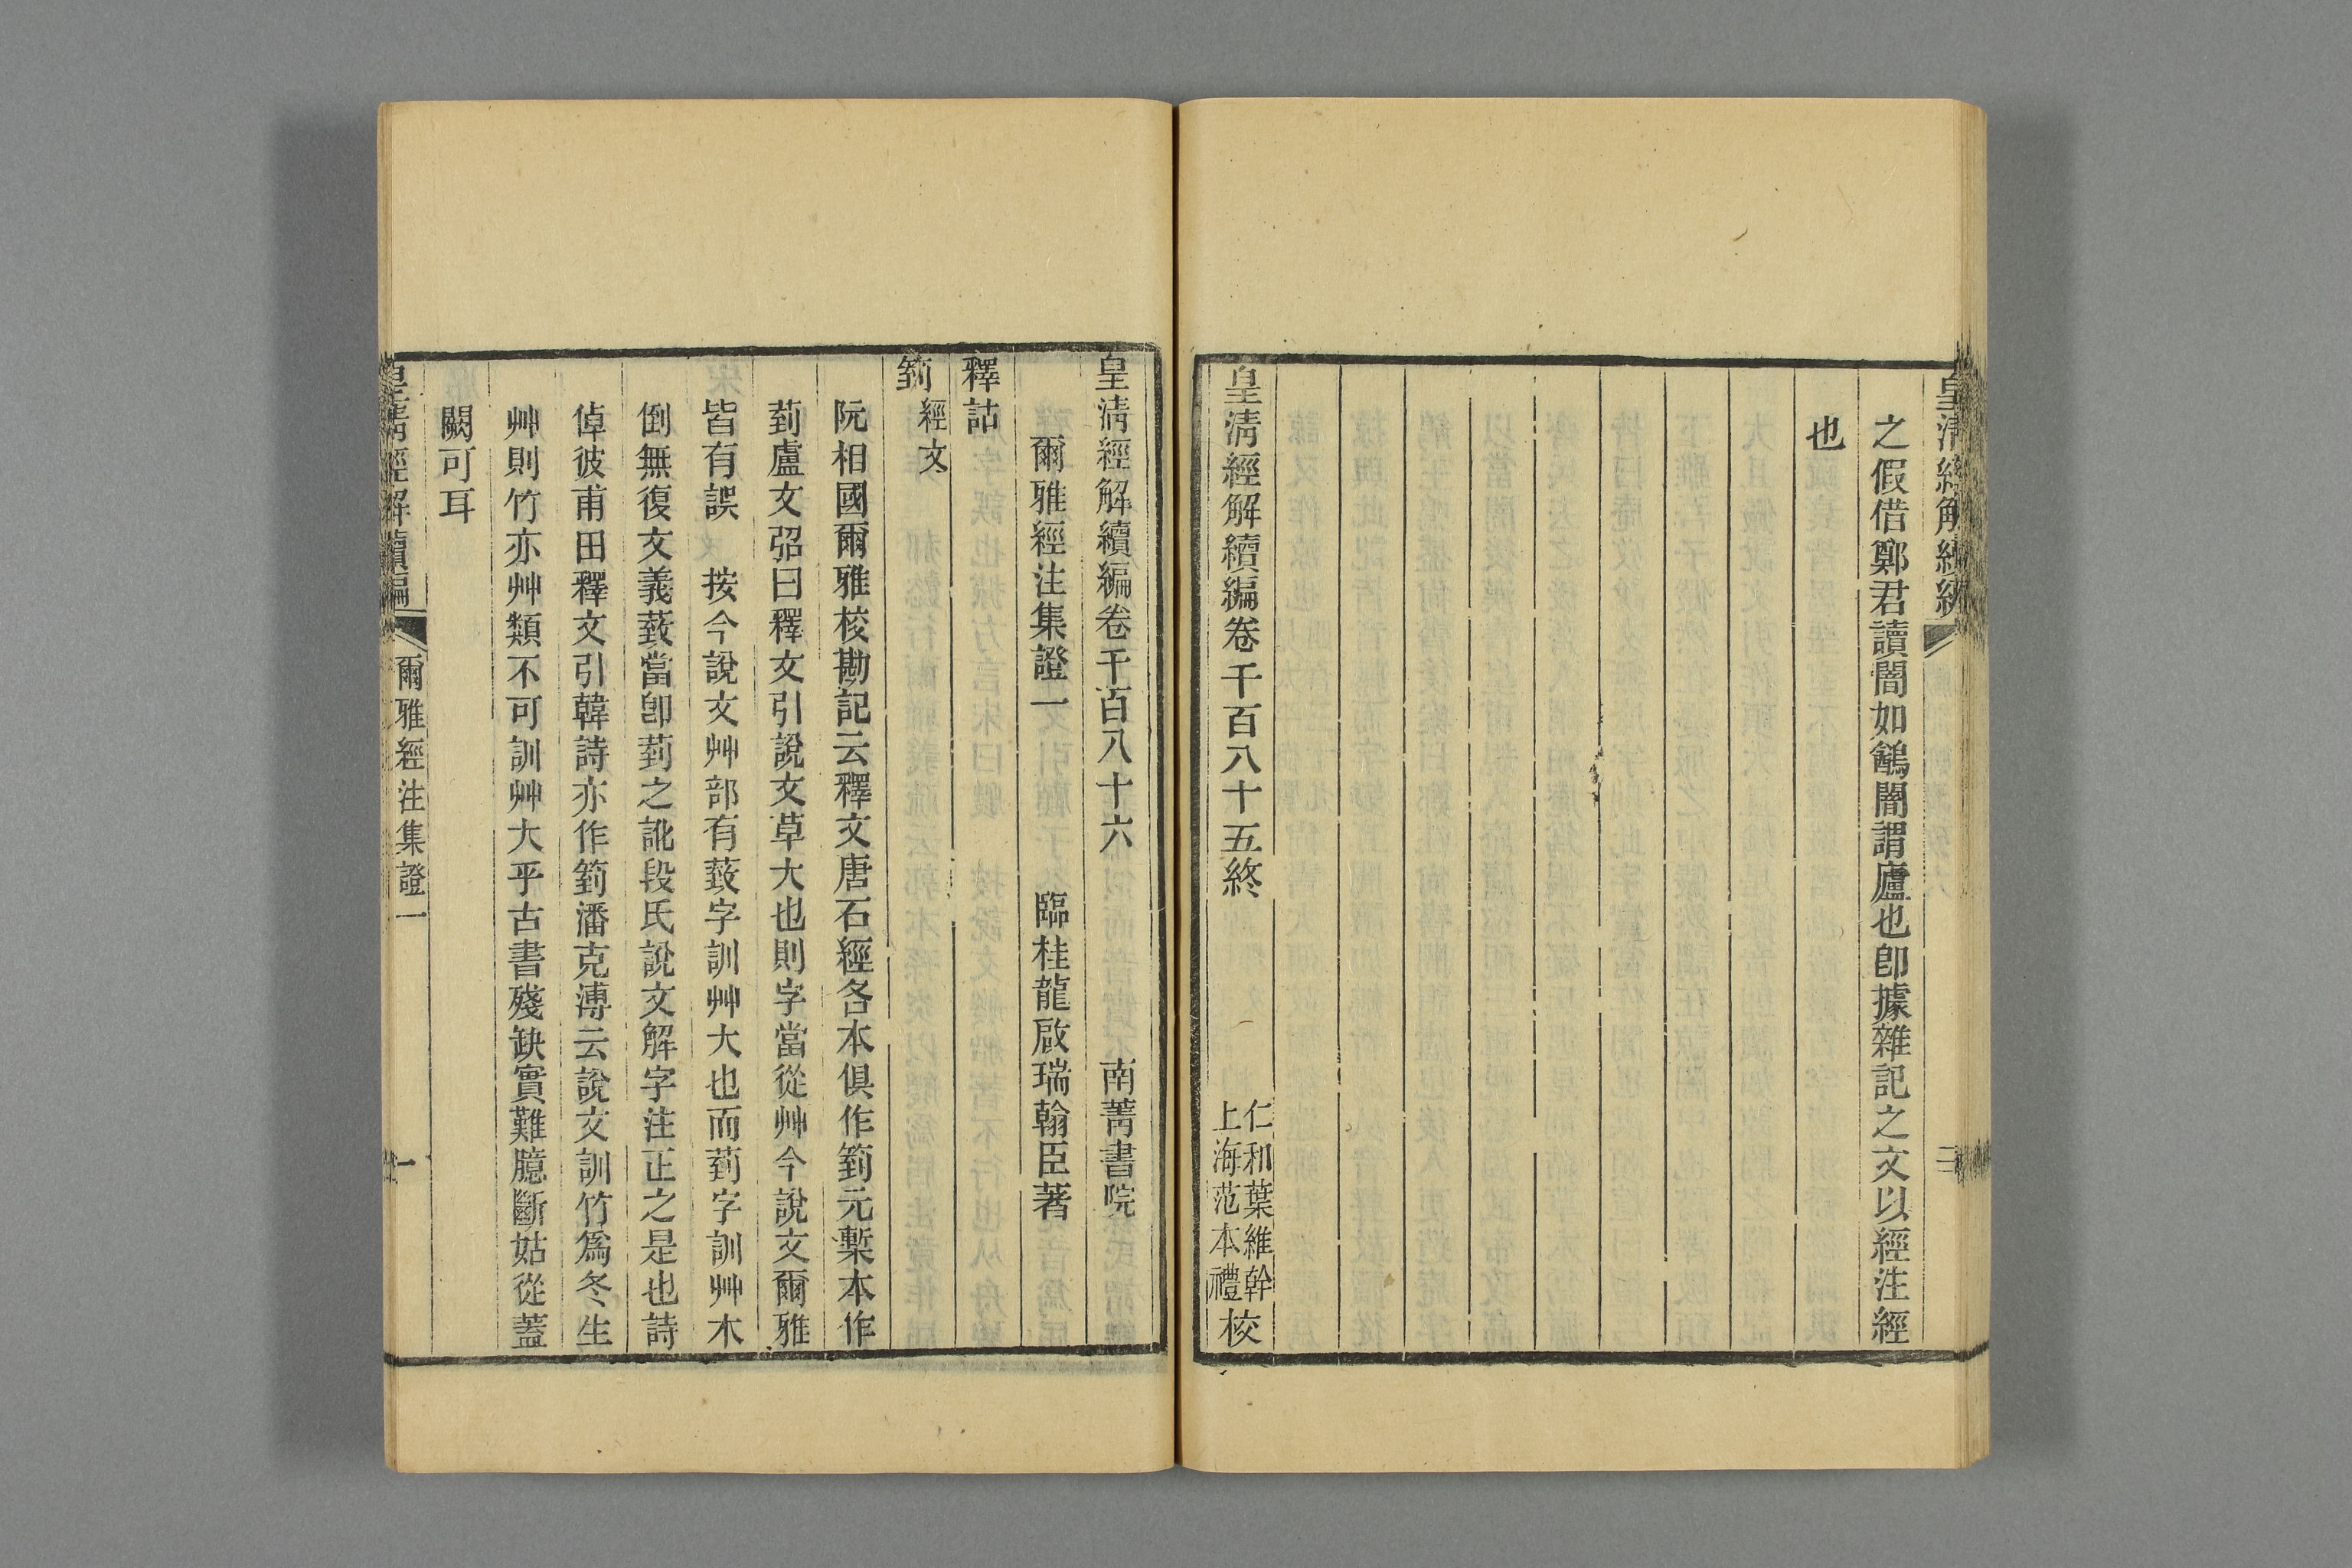 皇清經解續編
二
之假借鄭君讀闇如鶕闇謂廬也卽據雜記之文以經注經
也
皇清經解續編卷千百八十五終
仁和葉維幹
上海范本禮
校
皇清經解續編卷千百八十六
南菁書院
爾雅經注集證一
臨桂龍啟瑞翰臣著
釋詁
箌
經文
阮相國爾雅校勘記云釋文唐石經各本俱作箌元槧本作
菿盧文弨曰釋文引說文草大也則字當從艸今說文爾雅
皆有誤　按今說文艸部有蔎字訓艸大也而菿字訓艸木
倒無復文義蔎當卽菿之訛段氏說文解字注正之是也詩
倬彼甫田釋文引韓詩亦作箌潘克溥云說文訓竹爲冬生
艸則竹亦艸類不可訓艸大乎古書殘缺實難臆斷姑從蓋
闕可耳
皇清經解續編
爾雅經注集證一
一